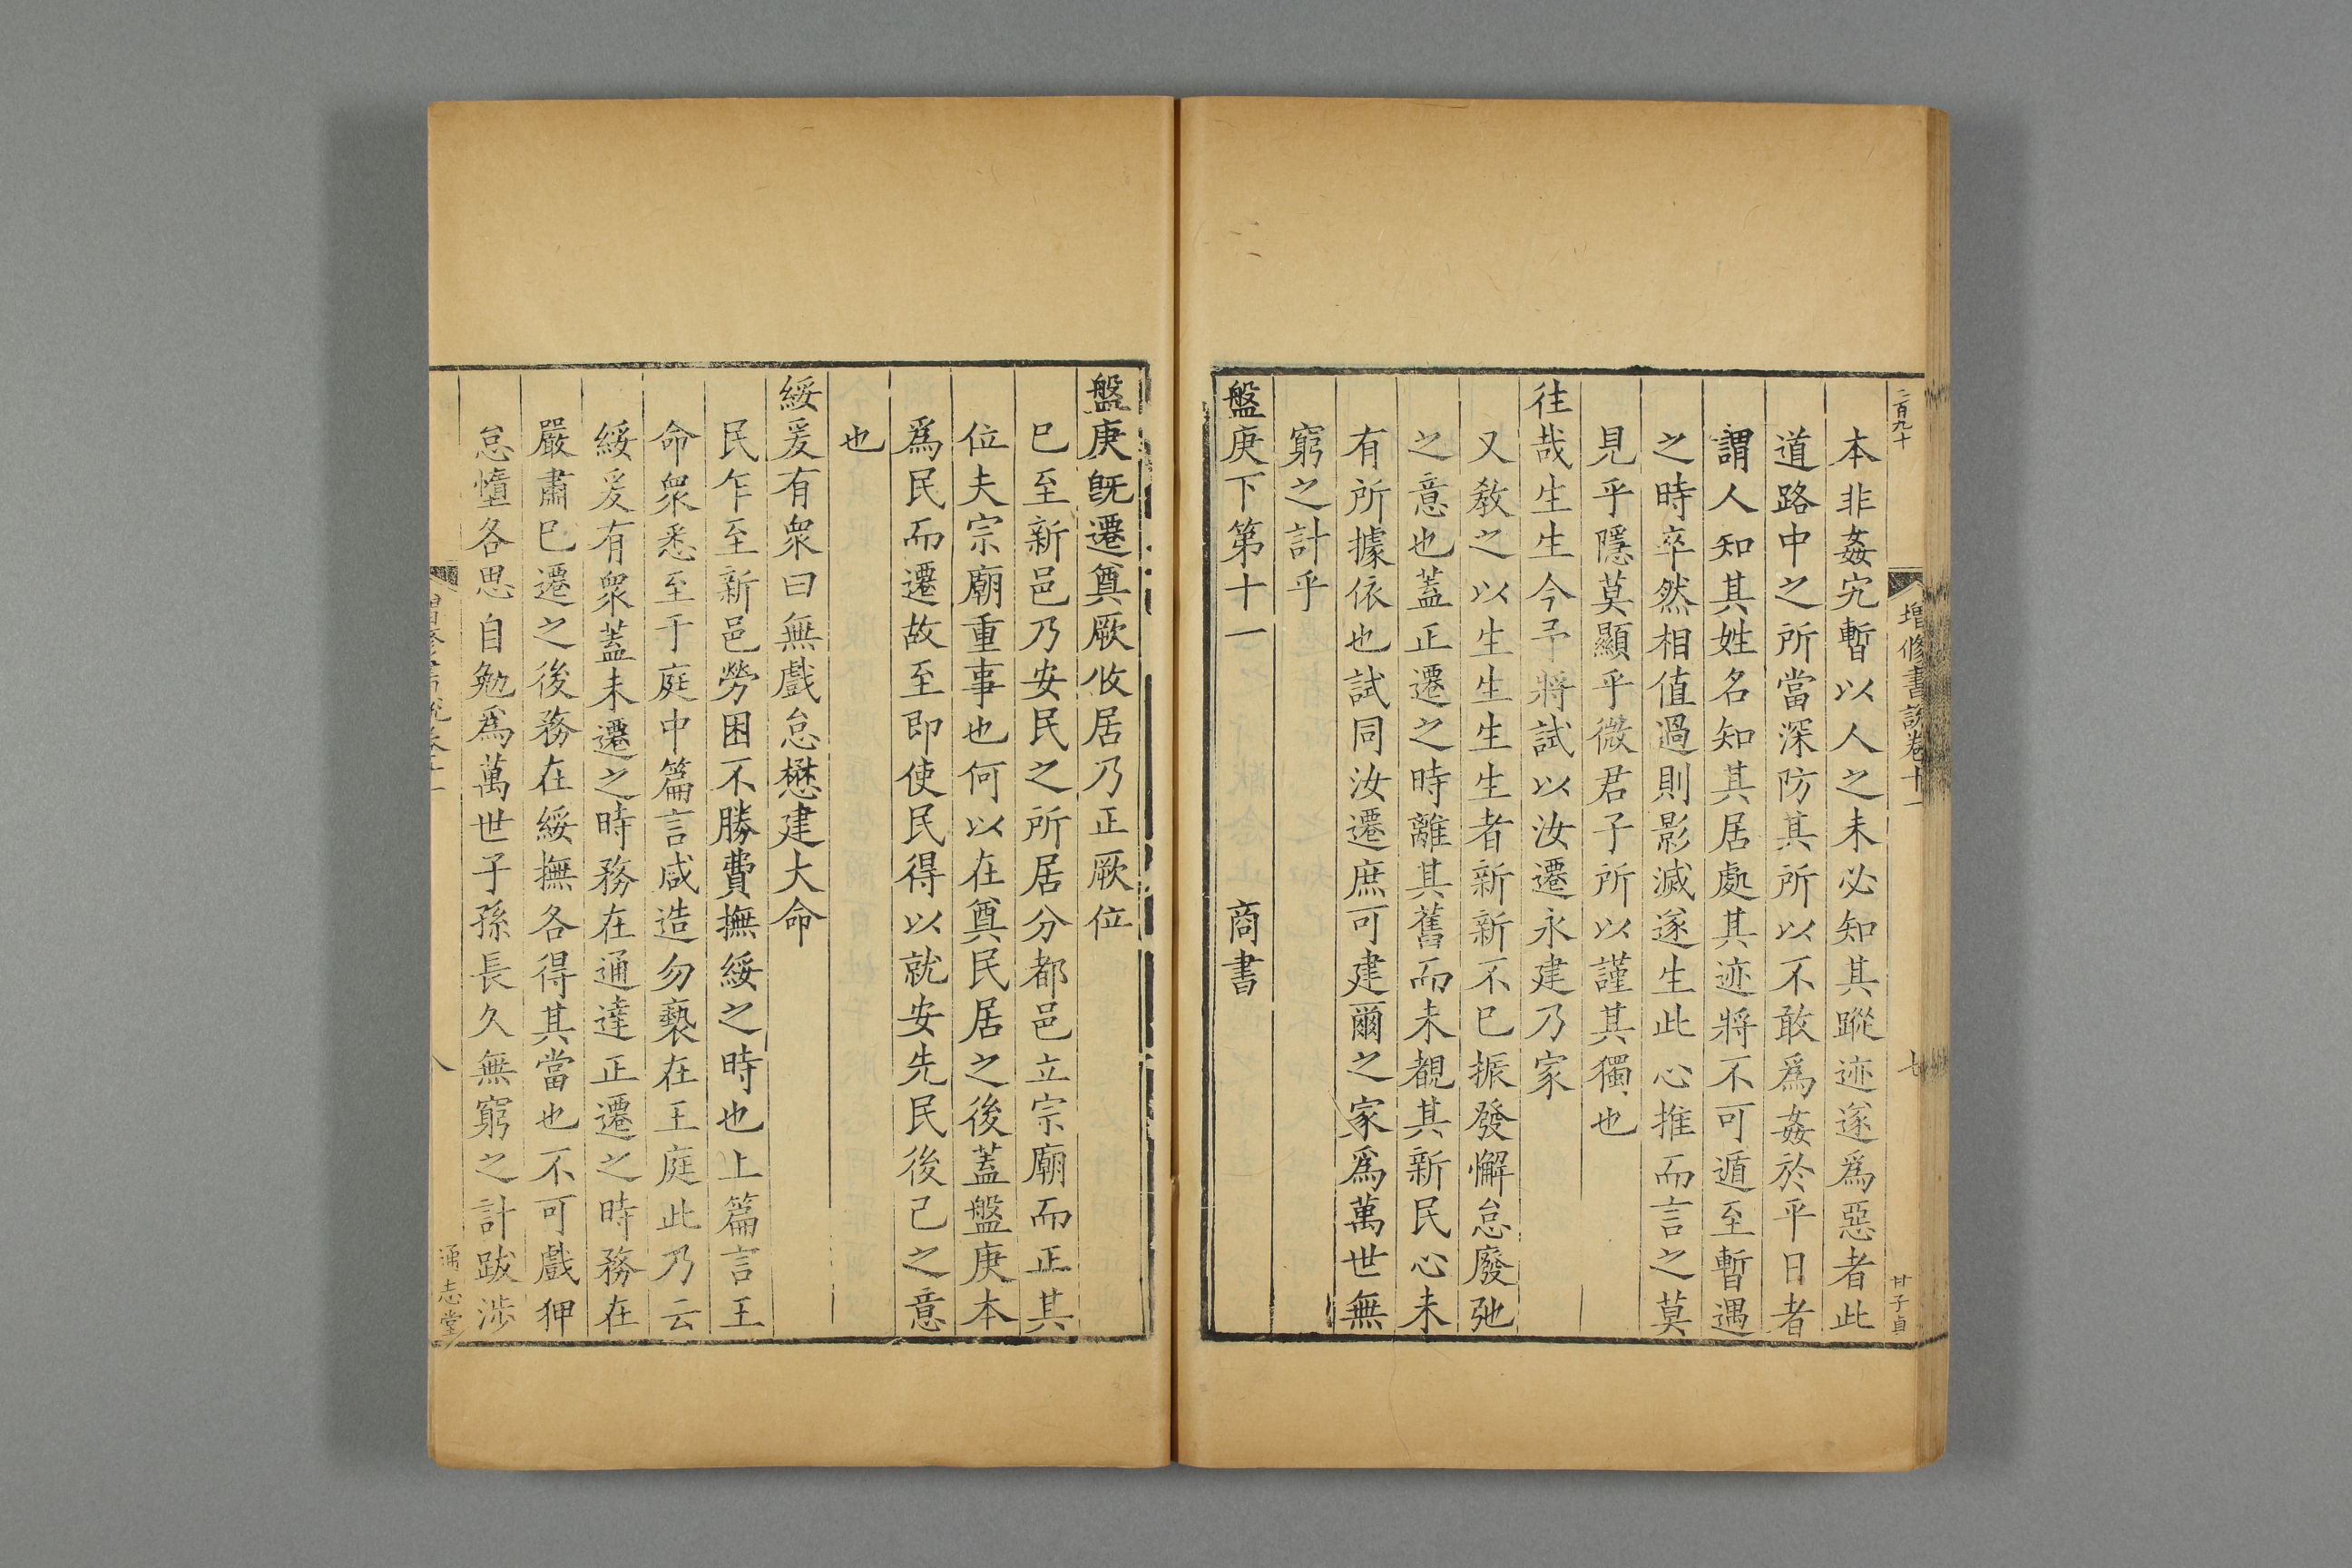 二百九十
增修書說卷十一
七
甘子貞
本非姦宄暫以人之未必知其蹤迹遂爲惡者此
道路中之所當深防其所以不敢爲姦於平日者
謂人知其姓名知其居處其迹將不可遁至暫遇
之時卒然相值過則影滅遂生此心推而言之莫
見乎隱莫顯乎微君子所以謹其獨也
往哉生生今予將試以汝遷永建乃家
又敎之以生生生生者新新不已振發懈怠廢弛
之意也蓋正遷之時離其舊而未覩其新民心未
有所據依也試同汝遷庶可建爾之家爲萬世無
窮之計乎
盤庚下第十一 商書
盤庚旣遷奠厥攸居乃正厥位
巳至新邑乃安民之所居分都邑立宗廟而正其
位夫宗廟重事也何以在奠民居之後蓋盤庚本
爲民而遷故至即使民得以就安先民後己之意
也
綏爰有衆曰無戲怠懋建大命
民乍至新邑勞困不勝費撫綏之時也上篇言王
命衆悉至于庭中篇言咸造勿褻在王庭此乃云
綏爰有衆蓋未遷之時務在通達正遷之時務在
嚴肅巳遷之後務在綏撫各得其當也不可戲狎
怠惰各思自勉爲萬世子孫長久無窮之計跋涉
八
通志堂